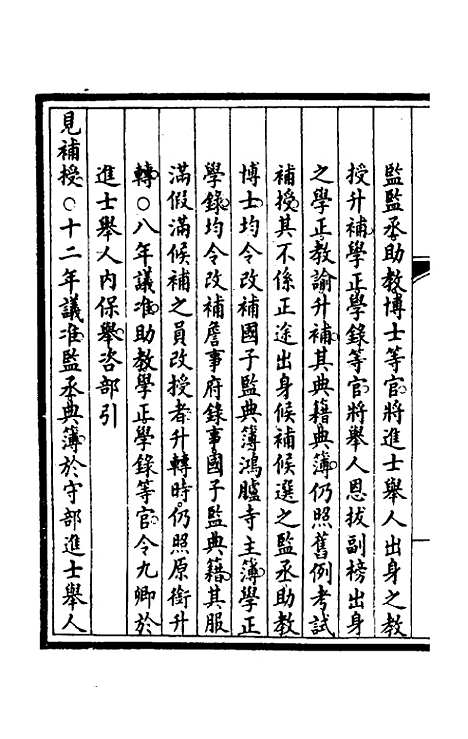 監監丞助教博士等官將進士舉人出身之教
授升補學正學錄等官將舉人恩拔副榜出身
之學正教諭升補其典籍典簿仍照舊例考試
補授其不係正途出身候補候選之監丞助教
博士均令改補國子監典簿鴻臚寺主簿學正
學錄均令改補詹事府錄事國子監典籍其服
滿假滿候補之員改授者升轉時仍照原銜升
轉○八年議准助教學正學錄等官令九卿於
進士舉人內保舉咨部引
見補授○十二年議准監丞典簿於守部進士舉人